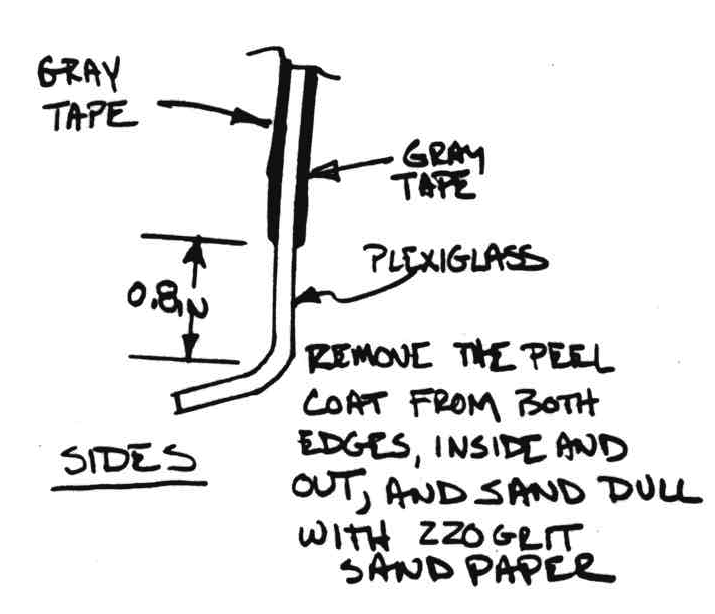 GRAY
TAPE
GRAY
TAPE
PLEXIGLASS
0.8IN
REMOVE THE PEEL
COAT FROM BOTH
EDGES, INSIDE AND
OUT, AND SAND DULL
WITH 220 GRIT
SAND PAPER
SIDES